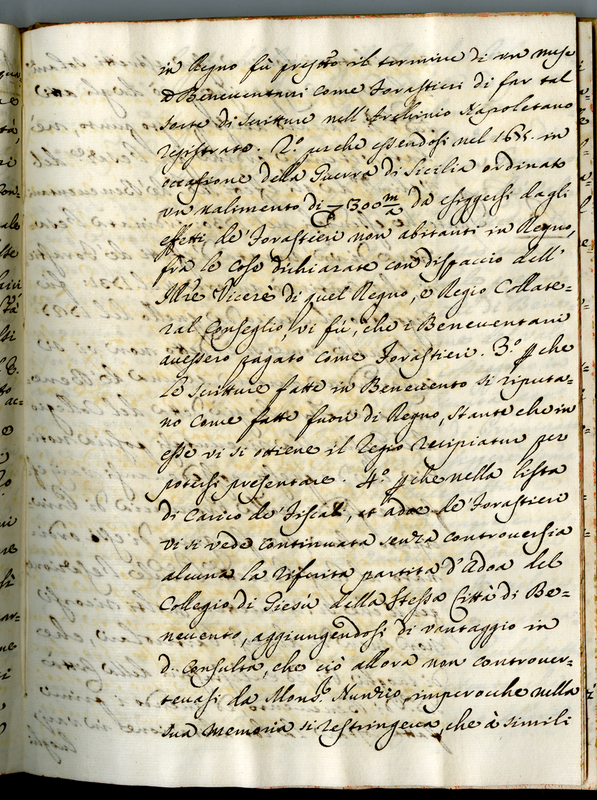 in Regno fù prestto il termine di un mese
a Beneventani come Forastieri di far tal
sorte di scritture nell'Archivio Napoletano
registrate. 2.º perche essendosi nel 1675. in
occasione della Guerra di Sicilia ordinato
un Valimento di 300 m/a da esiggersi dagli
effetti de' Forastieri non abitanti in Regno,
frà le cose dichiarate con dispaccio dell'
Ill.re Vicerè di quel Regno, e Regio Collate=
ral Conseglio, vi fù, che i Beneventani
avessero pagato come Forastieri. 3.º p che
le scritture fatte in Benevento si reputa=
no come fatte fuori di Regno, stante che in
esse vi si ottiene il Regio recipiatur per
potersi presentare. 4.º p che nella lista
di Carico de Fiscali, et adoe de Forastieri
vi si vede continuata senza controversia
alcuna la riferita partita d'Adoa del
Collegio di Giesù della stessa Città di Be=
nevento, aggiungendosi di vantaggio in
d.a Consulta, che ciò allora non controver=
tevasi da Mons.r Nunzio, imperocche nella
sua memoria si restringeva, che à simili